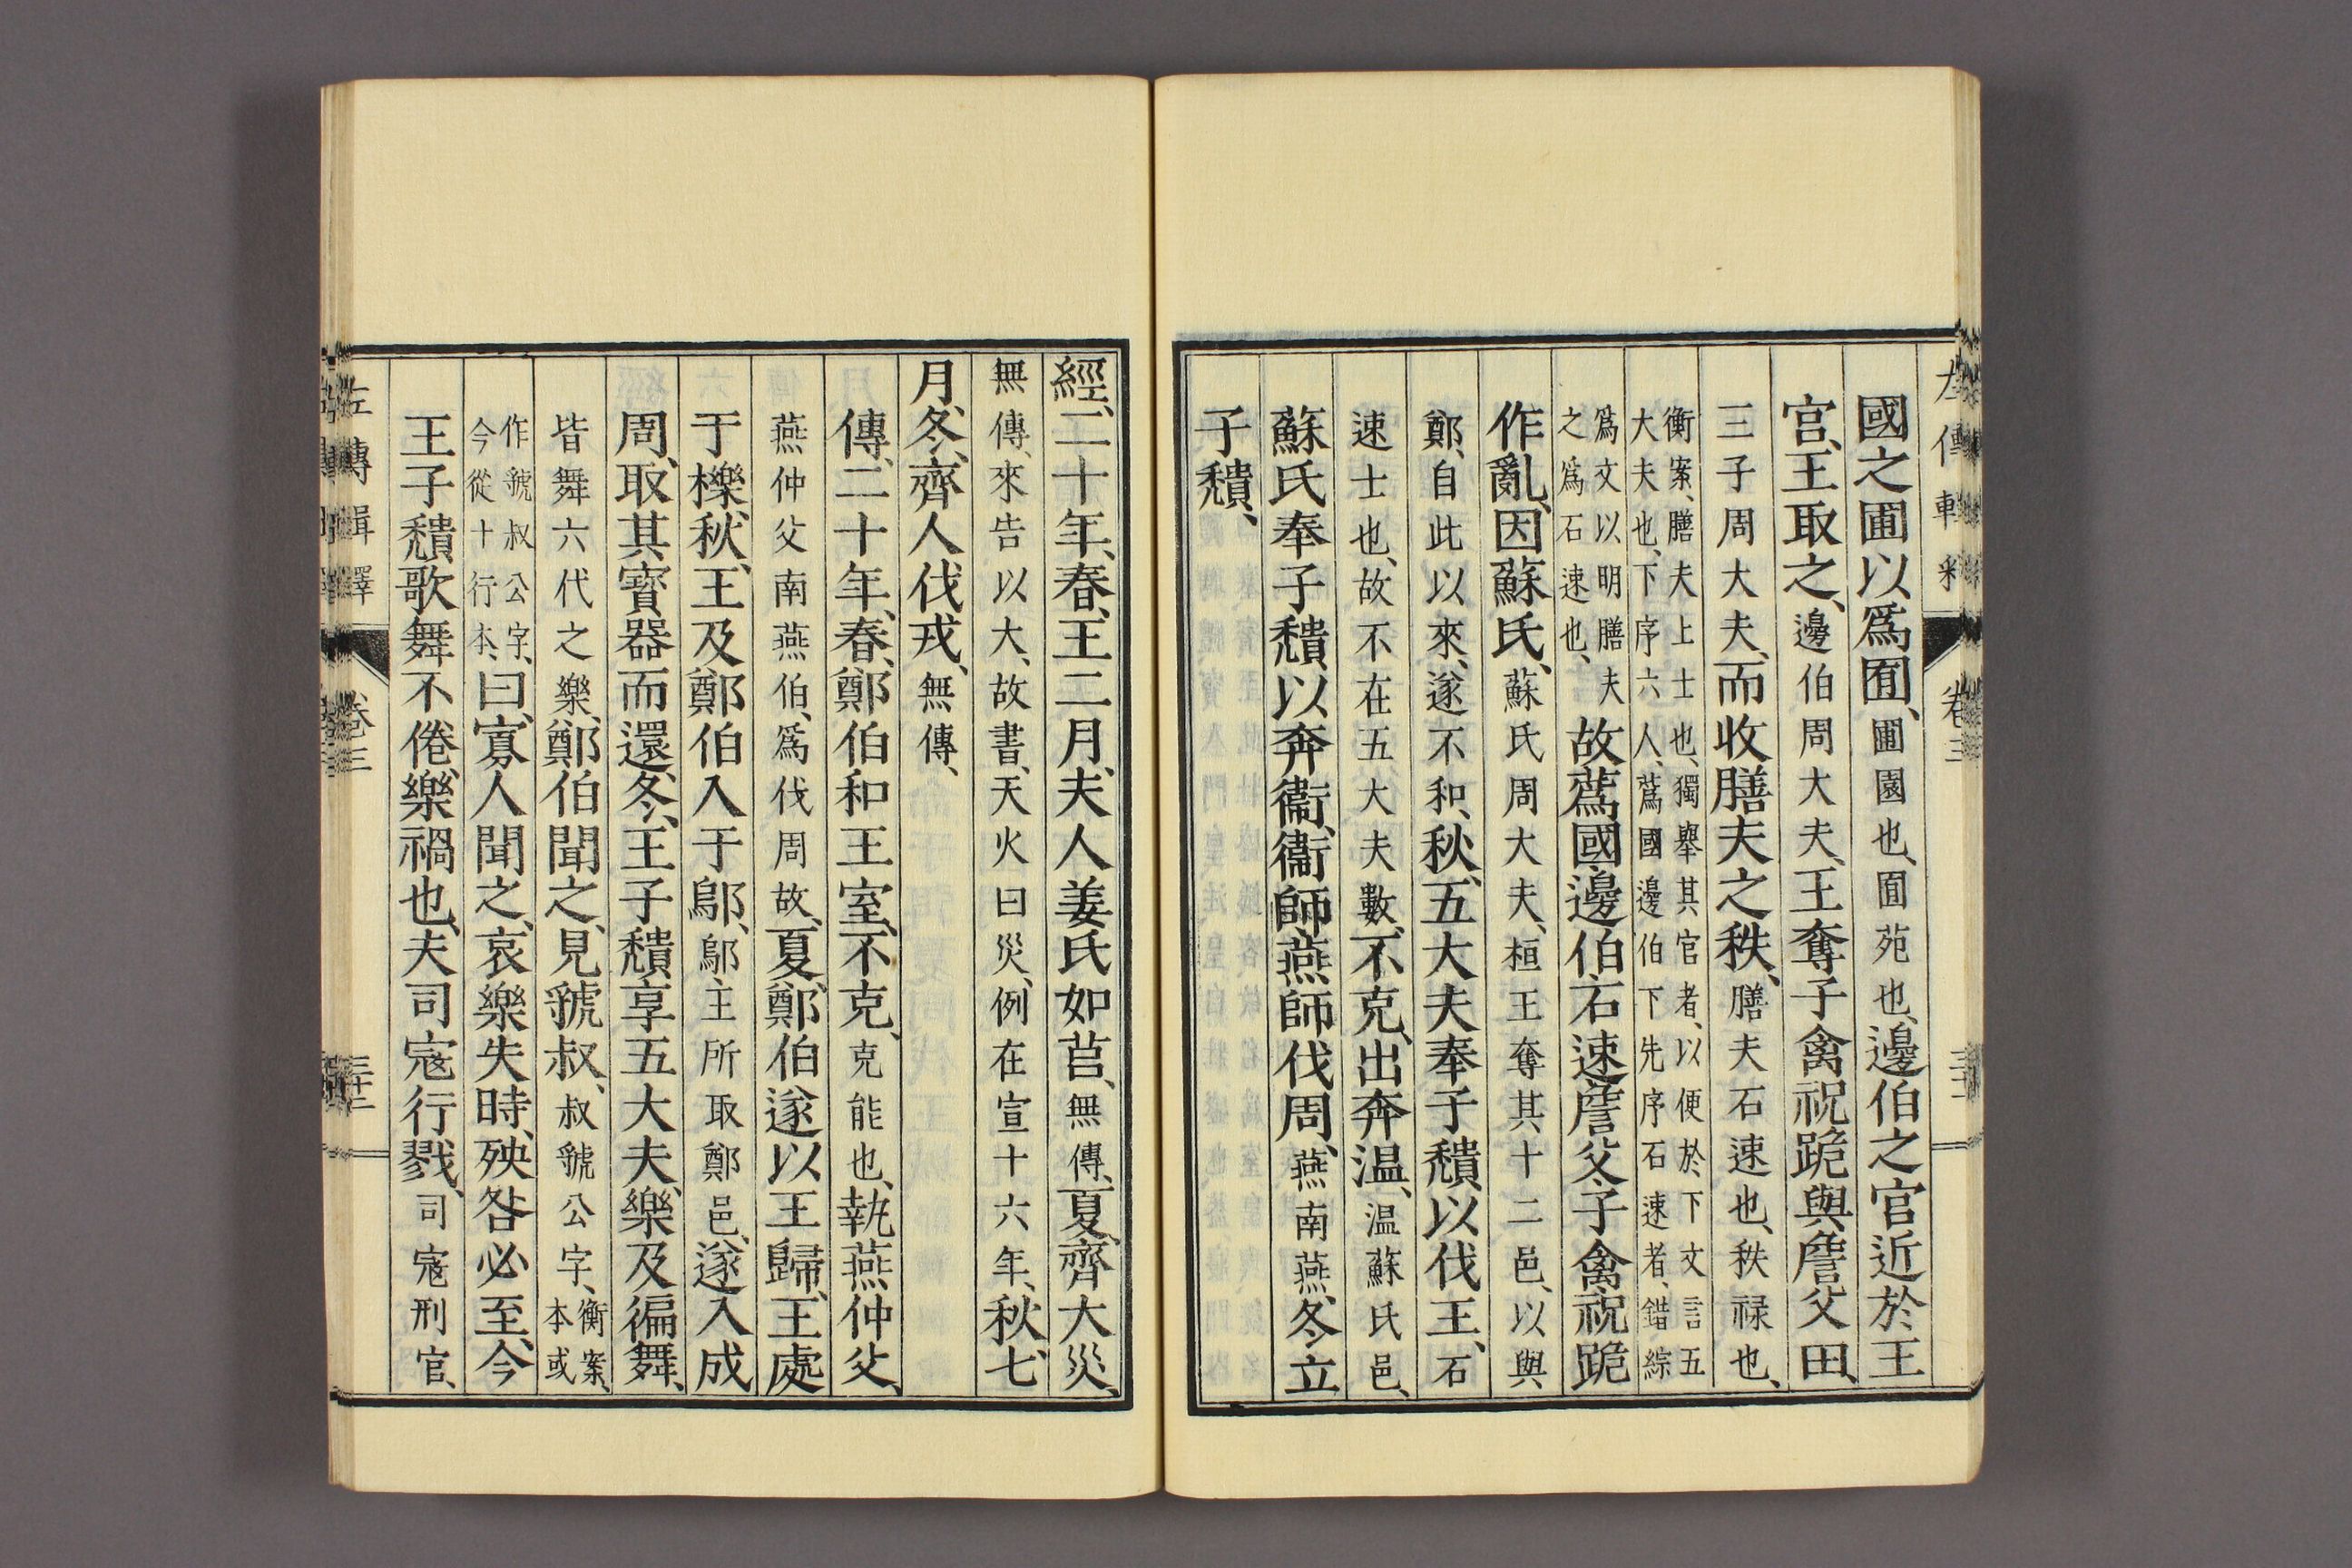 國之圃以爲囿、圃園也、囿苑也、邊伯之官近於王
宮、王取之、邊伯周大夫、王奪子禽祝跪與詹父田、
三子周大夫、而收膳夫之秩、膳夫石速也、秩祿也、
衡案、膳夫上士也、獨擧其官者、以便於下文言五
大夫也、下序六人、蔿國邊伯下先序石速者、錯綜
爲文以明膳夫
之爲石速也、
故蔿國邊伯石速詹父子禽祝跪
作亂、因蘇氏、蘇氏周大夫、桓王奪其十二邑、以與
鄭、自此以來、遂不和、秋、五大夫奉子穨以伐王、石
速士也、故不在五大夫數、不克、出奔温、温蘇氏邑、
蘇氏奉子穨以奔衞、衞師燕師伐周、燕南燕、冬、立
子穨、
經、二十年、春、王二月、夫人姜氏如莒、無傳、夏、齊大災、
無傳、來告以大、故書、天火曰災、例在宣十六年、秋、七
月、冬、齊人伐戎、無傳、
傳、二十年、春、鄭伯和王室、不克、克能也、執燕仲父、
燕仲父南燕伯、爲伐周故、夏、鄭伯遂以王歸、王處
于櫟、秋、王及鄭伯入于鄔、鄔、王所取鄭邑、遂入成
周、取其寶器而還、冬、王子穨享五大夫、樂及徧舞、
皆舞六代之樂、鄭伯聞之、見虢叔、叔虢公字、衡案、
本或
作虢叔公字、
今從十行本、
曰、寡人聞之、哀樂失時、殃咎必至、今
王子穨歌舞不倦、樂禍也、夫司寇行戮、司寇刑官、
左傳輯釋
卷三